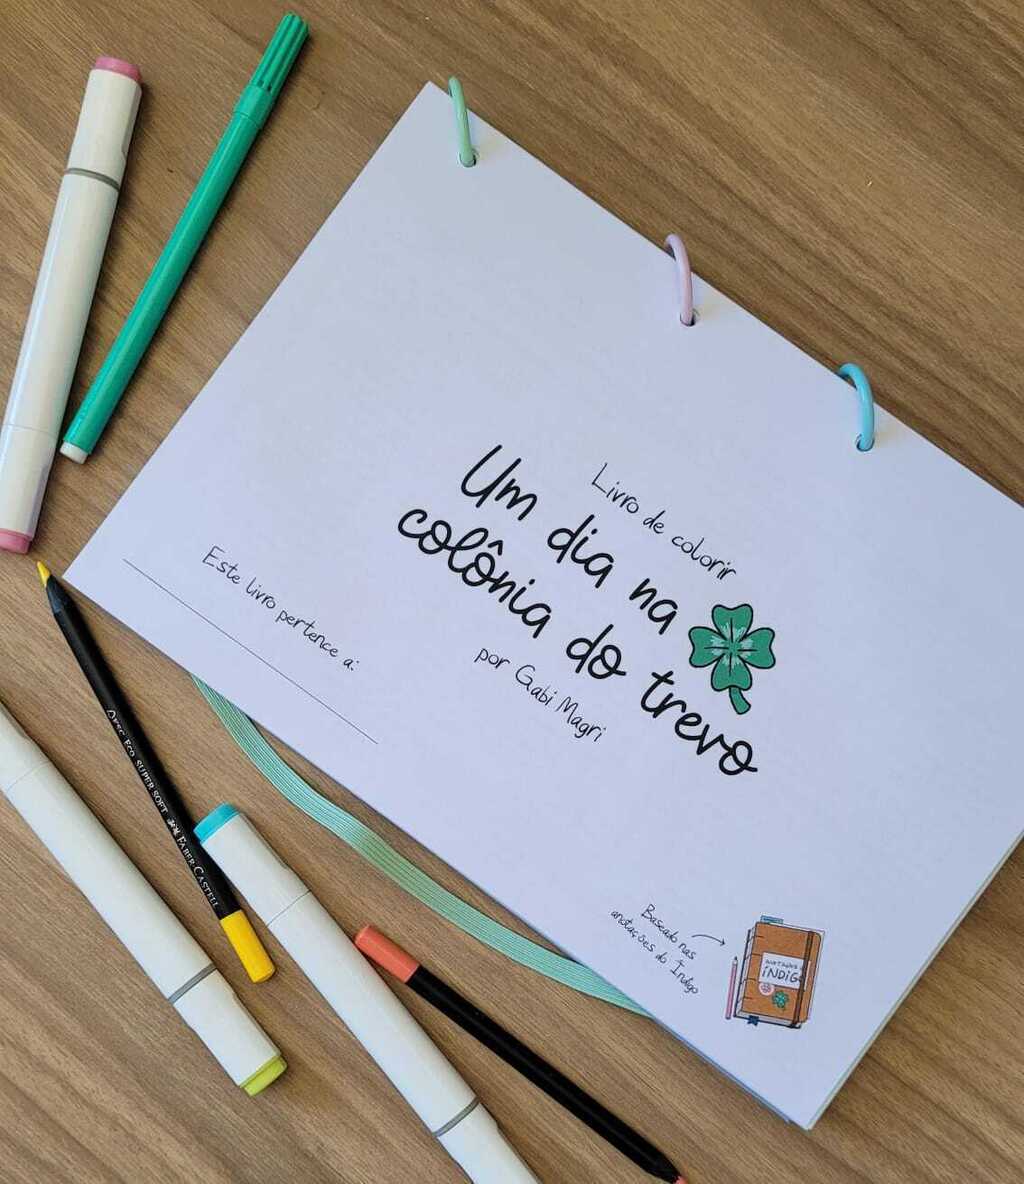 Livro de colorir
Um dia na
colônia do trevo
por Gabi Magri
Este livro pertence a:
Baseado nas
anotações do Índigo
ÍNDIGO
SUPER SOFT FABER CASTELL